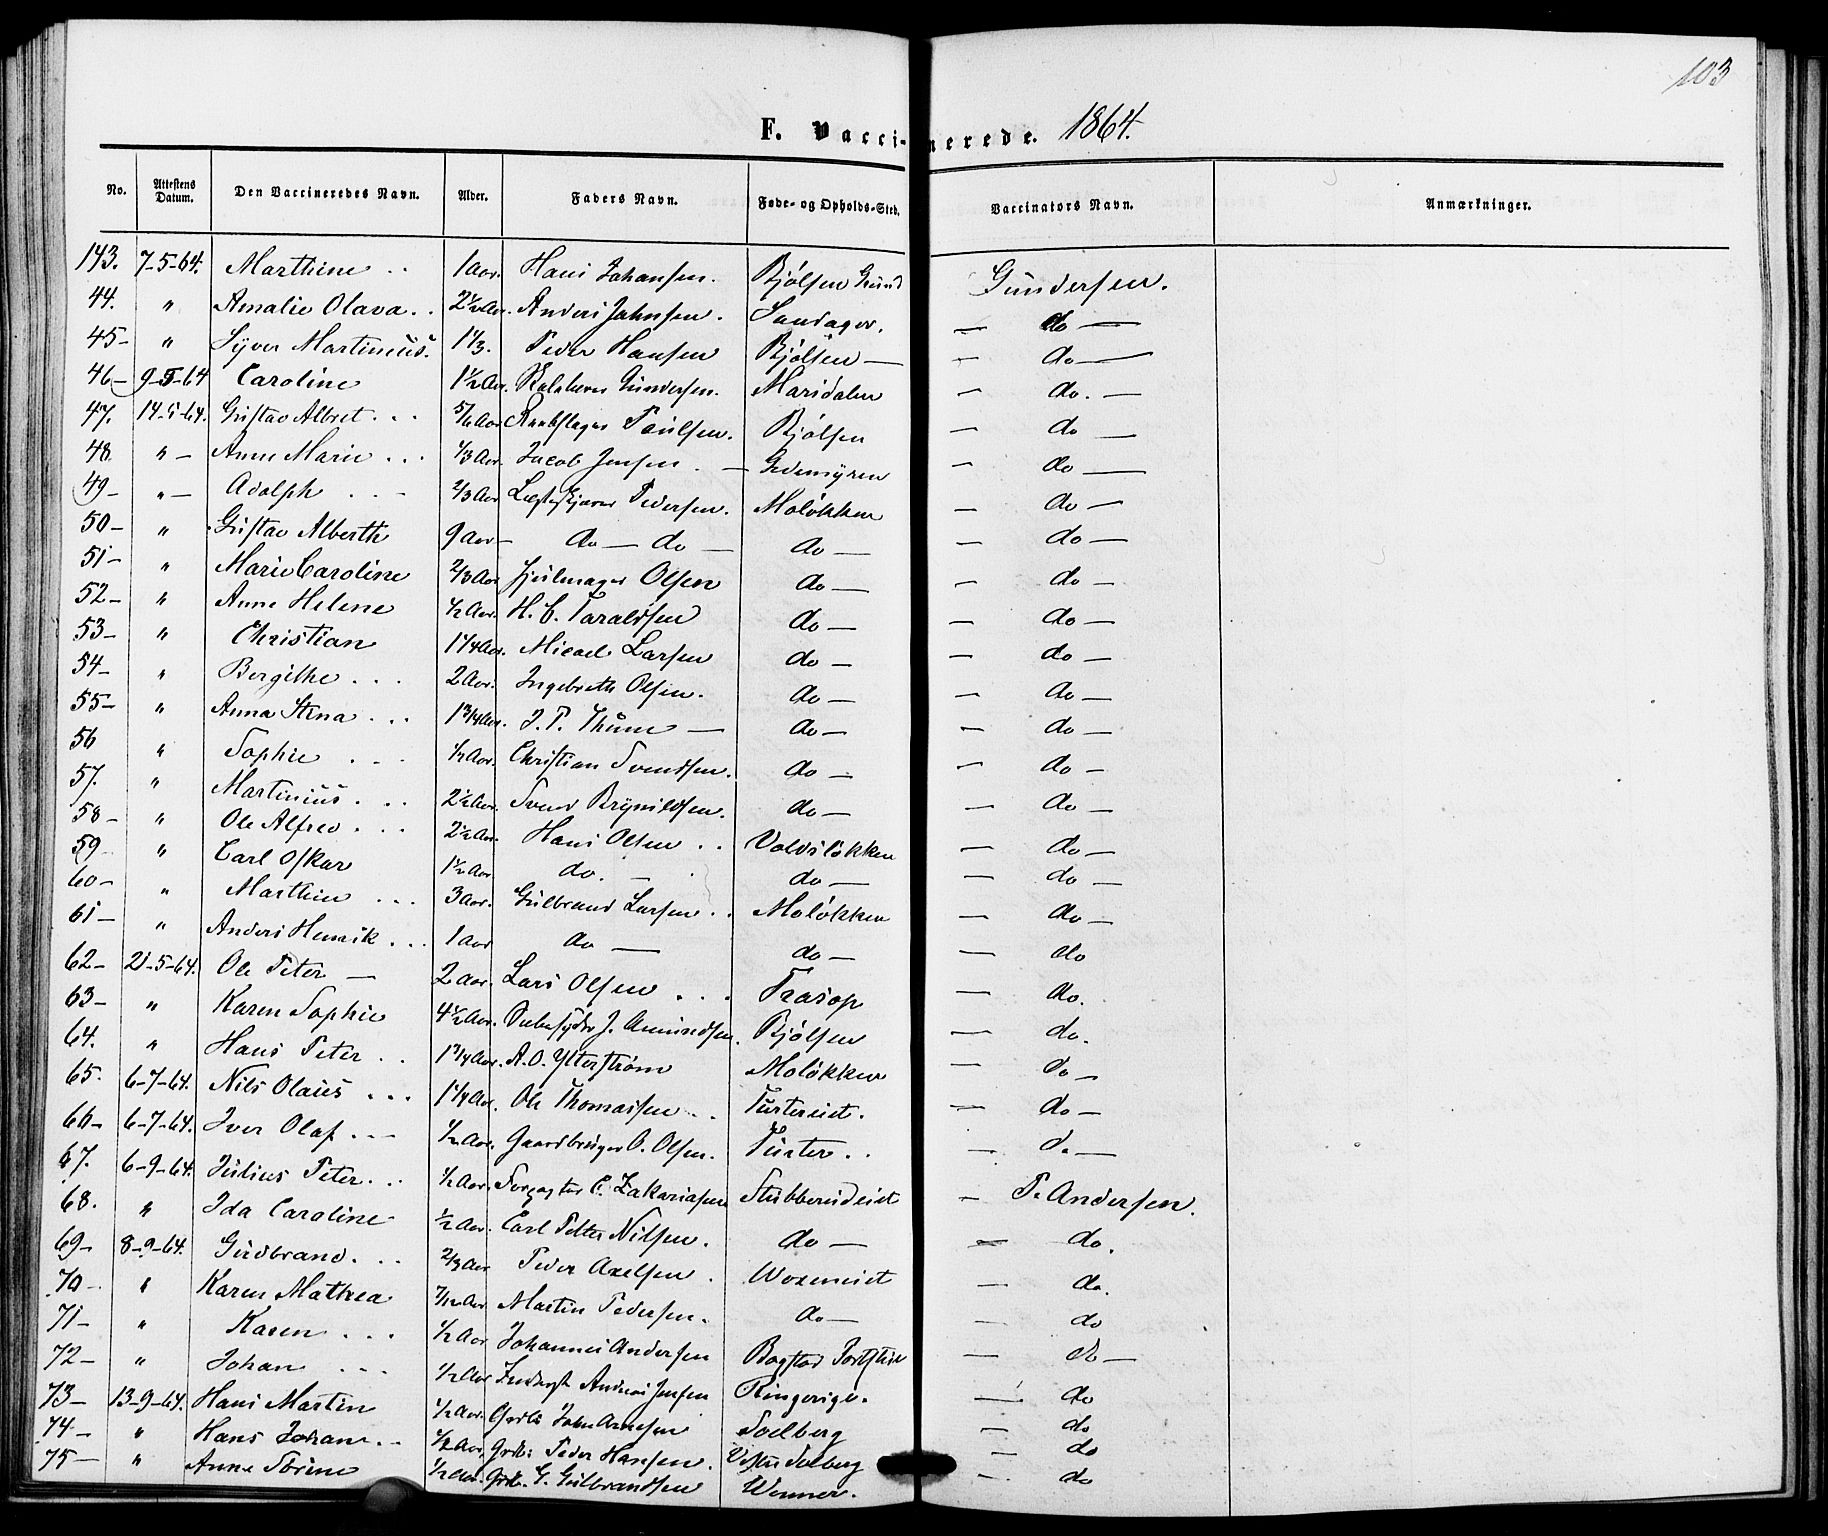 103
F. Vaccinerede. 1864.
No. Attestens Datum. Den Vaccineredes Navn. Alder. Faders Navn. Føde- og Opholds-Sted. Vaccinators Navn. Anmærkninger.
143. 7-5-64. Marthine .. 1 Aar. Hans Johansen. Bjølsen Grund Gundersen.
44. " Amalie Olava .. 2½ Aar. Anders Jahnsen. Sandager. — do —
45- " Syver Martinius. 1⅓. Peder Hansen Bjølsen — - do —
46- 9-5-64 Caroline 1½ Aar. Gundersen. Maridalen - do. —
47. 14-5-64. Gustav Albret ... 5/6 Aar Rebslager Paulsen. Bjølsen — do —
48. " - Anne Marie ... 1/3 Aar. Jacob Jensen. — Gedemyren - do —
49- " — Adolph ... 2/3 Aar Pedersen. Moløkken — do —
50- " Gustav Alberth 9 Aar- do — do — do — — do —
51- " Marie Caroline 2/3 Aar Hjulmager Olsen do — — do -
52- " Anne Helene ½ Aar. H. C. Taraldsen do — — do —
53- " Christian 1¼ Aar. Micael Larsen do — — do —
54- " Bergithe ... 2 Aar. Ingebreth Olsen. do — — do —
55- " Anna Stina ... 1¾ Aar. J. P. Thune — do — — do —
56 " Sophie ... ½ Aar. Christian Svendsen. do — — do -
57. " Martinius ... 2½ Aar. Svend Brynildsen. do — — do —
58- " Ole Alfred ... 2½ Aar. Hans Olsen .. Voldsløkken — do —
59- " Carl Oskar 1½ Aar do. - do — — do —
60- " Marthin ... 3 Aar. Gulbrand Larsen .. Moløkken — do —
61- " Anders Henrik ... 1 Aar do — do — — do
62- 21-5-64. Ole Peter — 2 Aar. Lars Olsen ... Traasop — do.
63- " Karen Sophie 4½ Aar. J. Amundsen. Bjølsen — do.
64. " Hans Peter .. 1¾ Aar. A. O. Ytterstrøm Moløkken — do -
65. 6-7-64. Nils Olaus ... 1¼ Aar. Ole Thomassen .. Turtereiet. — do -
66- 6-7-64. Iver Olaf ... ½ Aar. Gaardbruger O. Olsen. Turter .. - do —
67. 6-9-64. Julius Peter ... ½ Aar. C. Zakariasen Stubberudeiet - P. Andersen.
68. " Ida Caroline ½ Aar. Carl Petter Nilsen. do — — do.
69- 8-9-64. Gudbrand ... 2/3 Aar Peder Axelsen. Woxeneiet — do.
70- " Karen Mathea 7/12 Aar Martin Pedersen. do — — do
71- " Karen ... ½ Aar Johannes Andersen Bogstad — do —
72- " Johan ... ½ Aar Anders Jensen Ringerige. — do
73- 13-9-64. Hans Martin ½ Aar. Grdb. John Arnesen Solberg — do
74- " Hans Johan .. ½ Aar. Grdb: Peder Hansen. Solberg — do
75- " Anne Sørine ½ Aar. Grdb. G. Gulbrandsen Wenner. - do